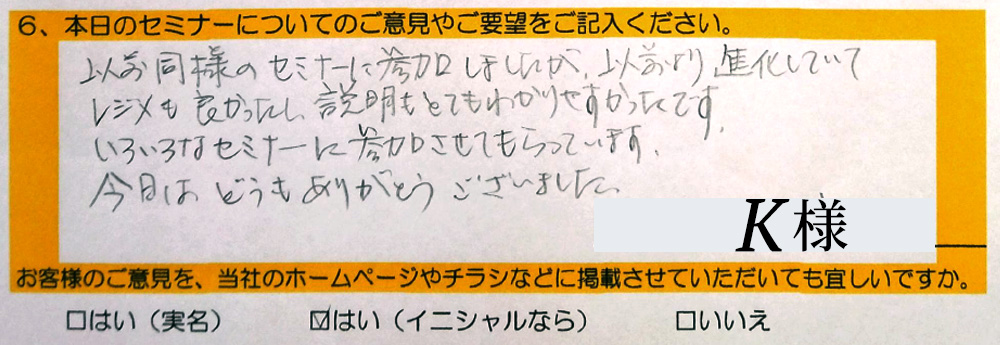 6、本日のセミナーについてのご意見やご要望をご記入ください。
以前同様のセミナーに参加しましたが、以前より進化していて
レジメも良かったし、説明もとてもわかりやすかったです。
いろいろなセミナーに参加させてもらっています。
今日はどうもありがとうございました。
K様
お客様のご意見を、当社のホームページやチラシなどに掲載させていただいても宜しいですか。
□はい（実名） ☑はい（イニシャルなら） □いいえ